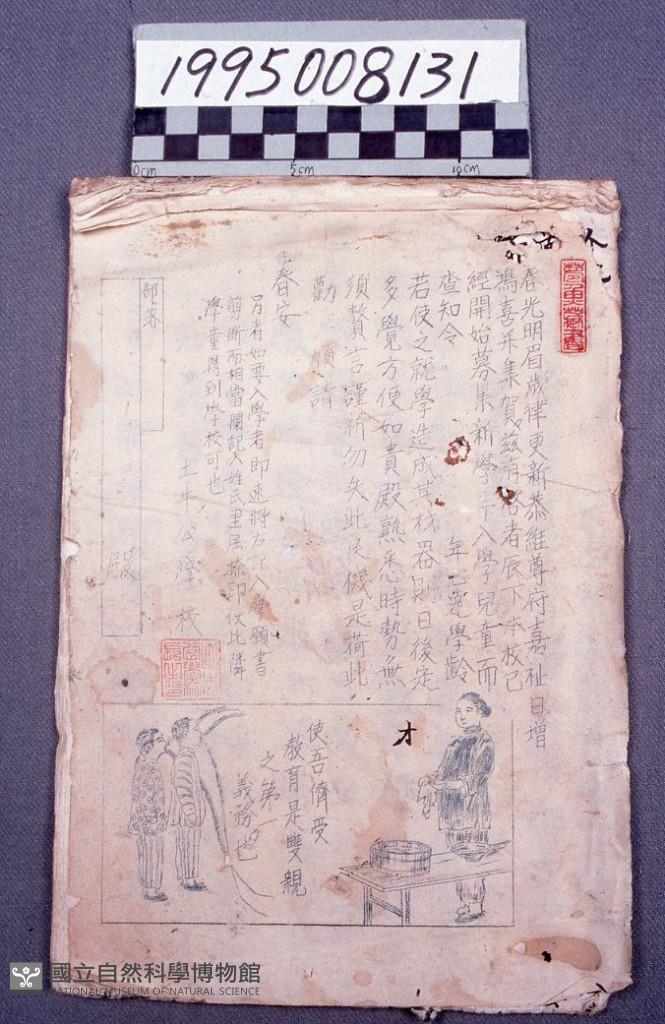 1995008131
0cm 5cm 10cm
人
春光明眉歲律更新恭維尊府嘉祉日增
馮喜并集賀茲啓者辰下本校已
經開始募集新學年入學兒童而
查知令 年已達學齡
若使之就學造成其材器則日後定
多覺方便如貴殿熟悉時勢無
須贅言謹祈勿失此良機是荷此
勸 順請
春安
另者如要入學者即速將左記入學願書
前納而相當欄記入姓氏里居捺印伏比隣
學童帶到學校可也
土牛公學校
部落
殿
使吾儕受
教育是雙親
之第一
義務也
才
國立自然科學博物館
NATIONAL MUSEUM OF NATURAL SCIENCE